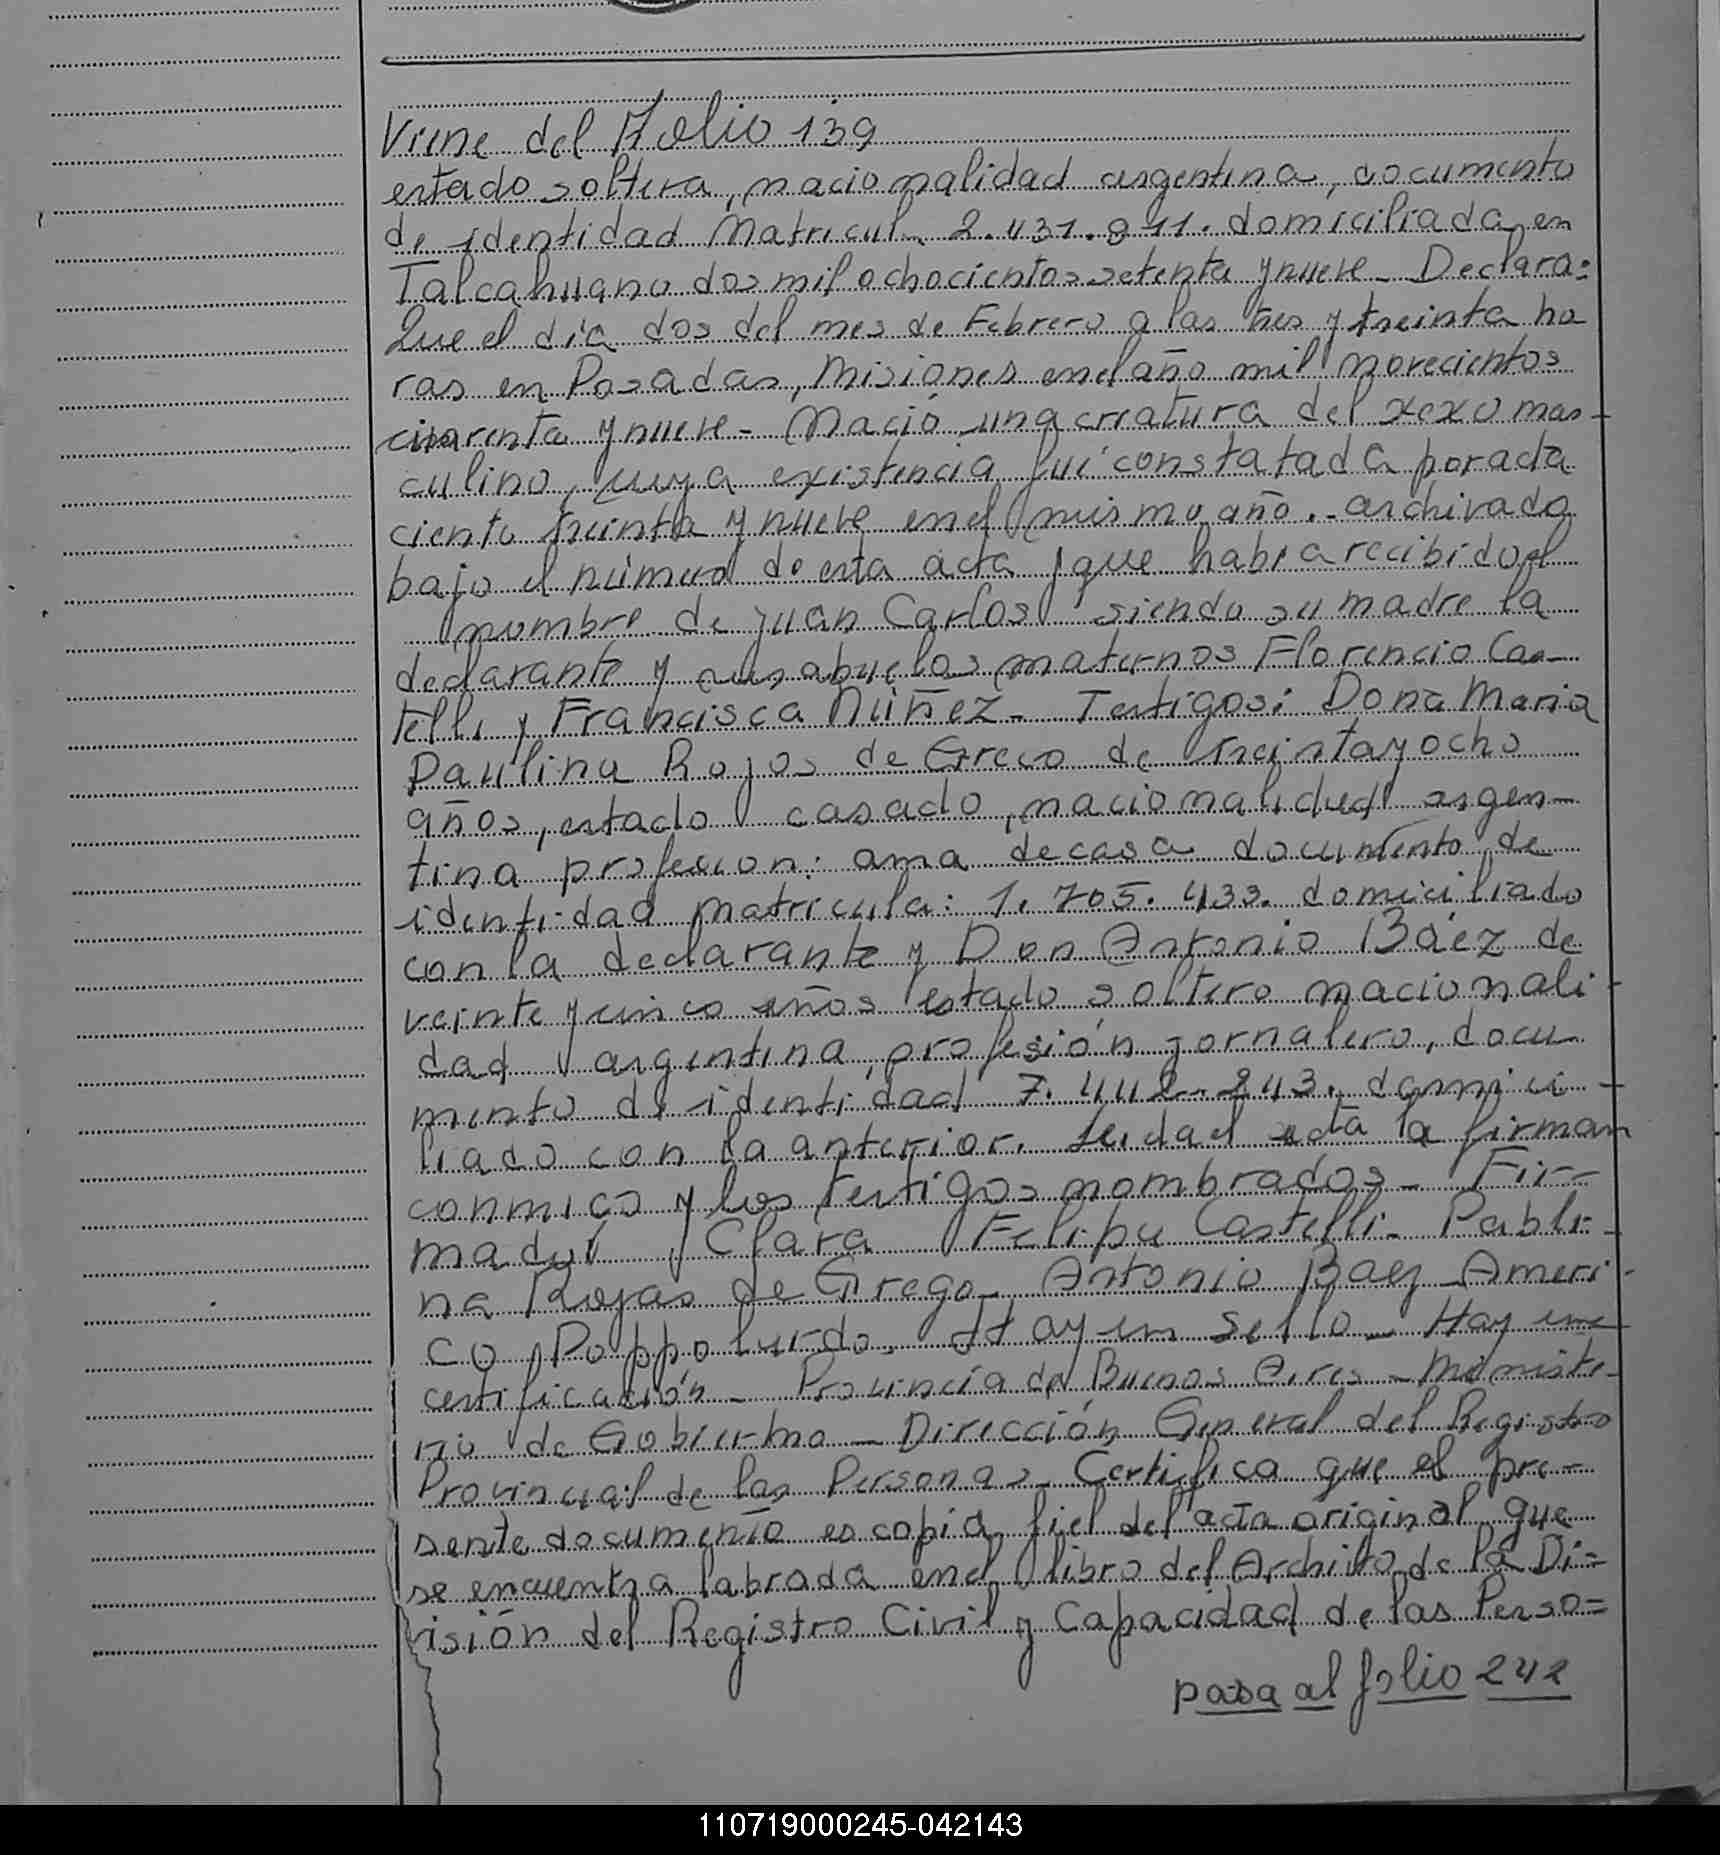 Viene del Folio 139
estado soltera, nacionalidad argentina, documento
de identidad Matricula 2.431.811. domiciliada en
Talcahuano dos mil ochocientos setenta y nueve - Declara:
Que el día dos del mes de Febrero a las tres y treinta ho
ras en Posadas, Misiones en el año mil novecientos
cuarenta y nueve - Nació una criatura del xexo mas-
culino, cuya existencia fué constatada por acta
ciento treinta y nueve en el mismo año. - archivada
bajo el número de esta acta y que habia recibido el
nombre de Juan Carlos siendo su madre la
declarante y sus abuelos maternos Florencio Cas-
telli y Francisca Núñez - Testigos: Dona Maria
Paulina Rojas de Greco de treinta y ocho
años, estado casado, nacionalidad argen-
tina profesion: ama de casa documento de
identidad matricula: 1.705.433. domiciliado
con la declarante y Don Antonio Báez de
veinte y cinco años estado soltero nacionali-
dad argentina, profesión jornalero, docu
mento de identidad 7.442.243. domici-
liado con la anterior. Leida el acta la firman
conmigo y los testigos nombrados - Fir-
mado: Clara Felipa Castelli - Pabli-
na Rojas de Grego - Antonio Baez - Ameri-
co Poppolurdo. Hay un sello - Hay una
certificación - Provincia de Buenos Aires - Ministe-
rio de Gobierno - Dirección General del Registro
Provincial de las Personas - Certifica que el pre-
sente documento es copia fiel del acta original que
se encuentra labrada en el libro del Archivo de la Di=
visión del Registro Civil y Capacidad de las Perso=
pasa al folio 242
110719000245-042143